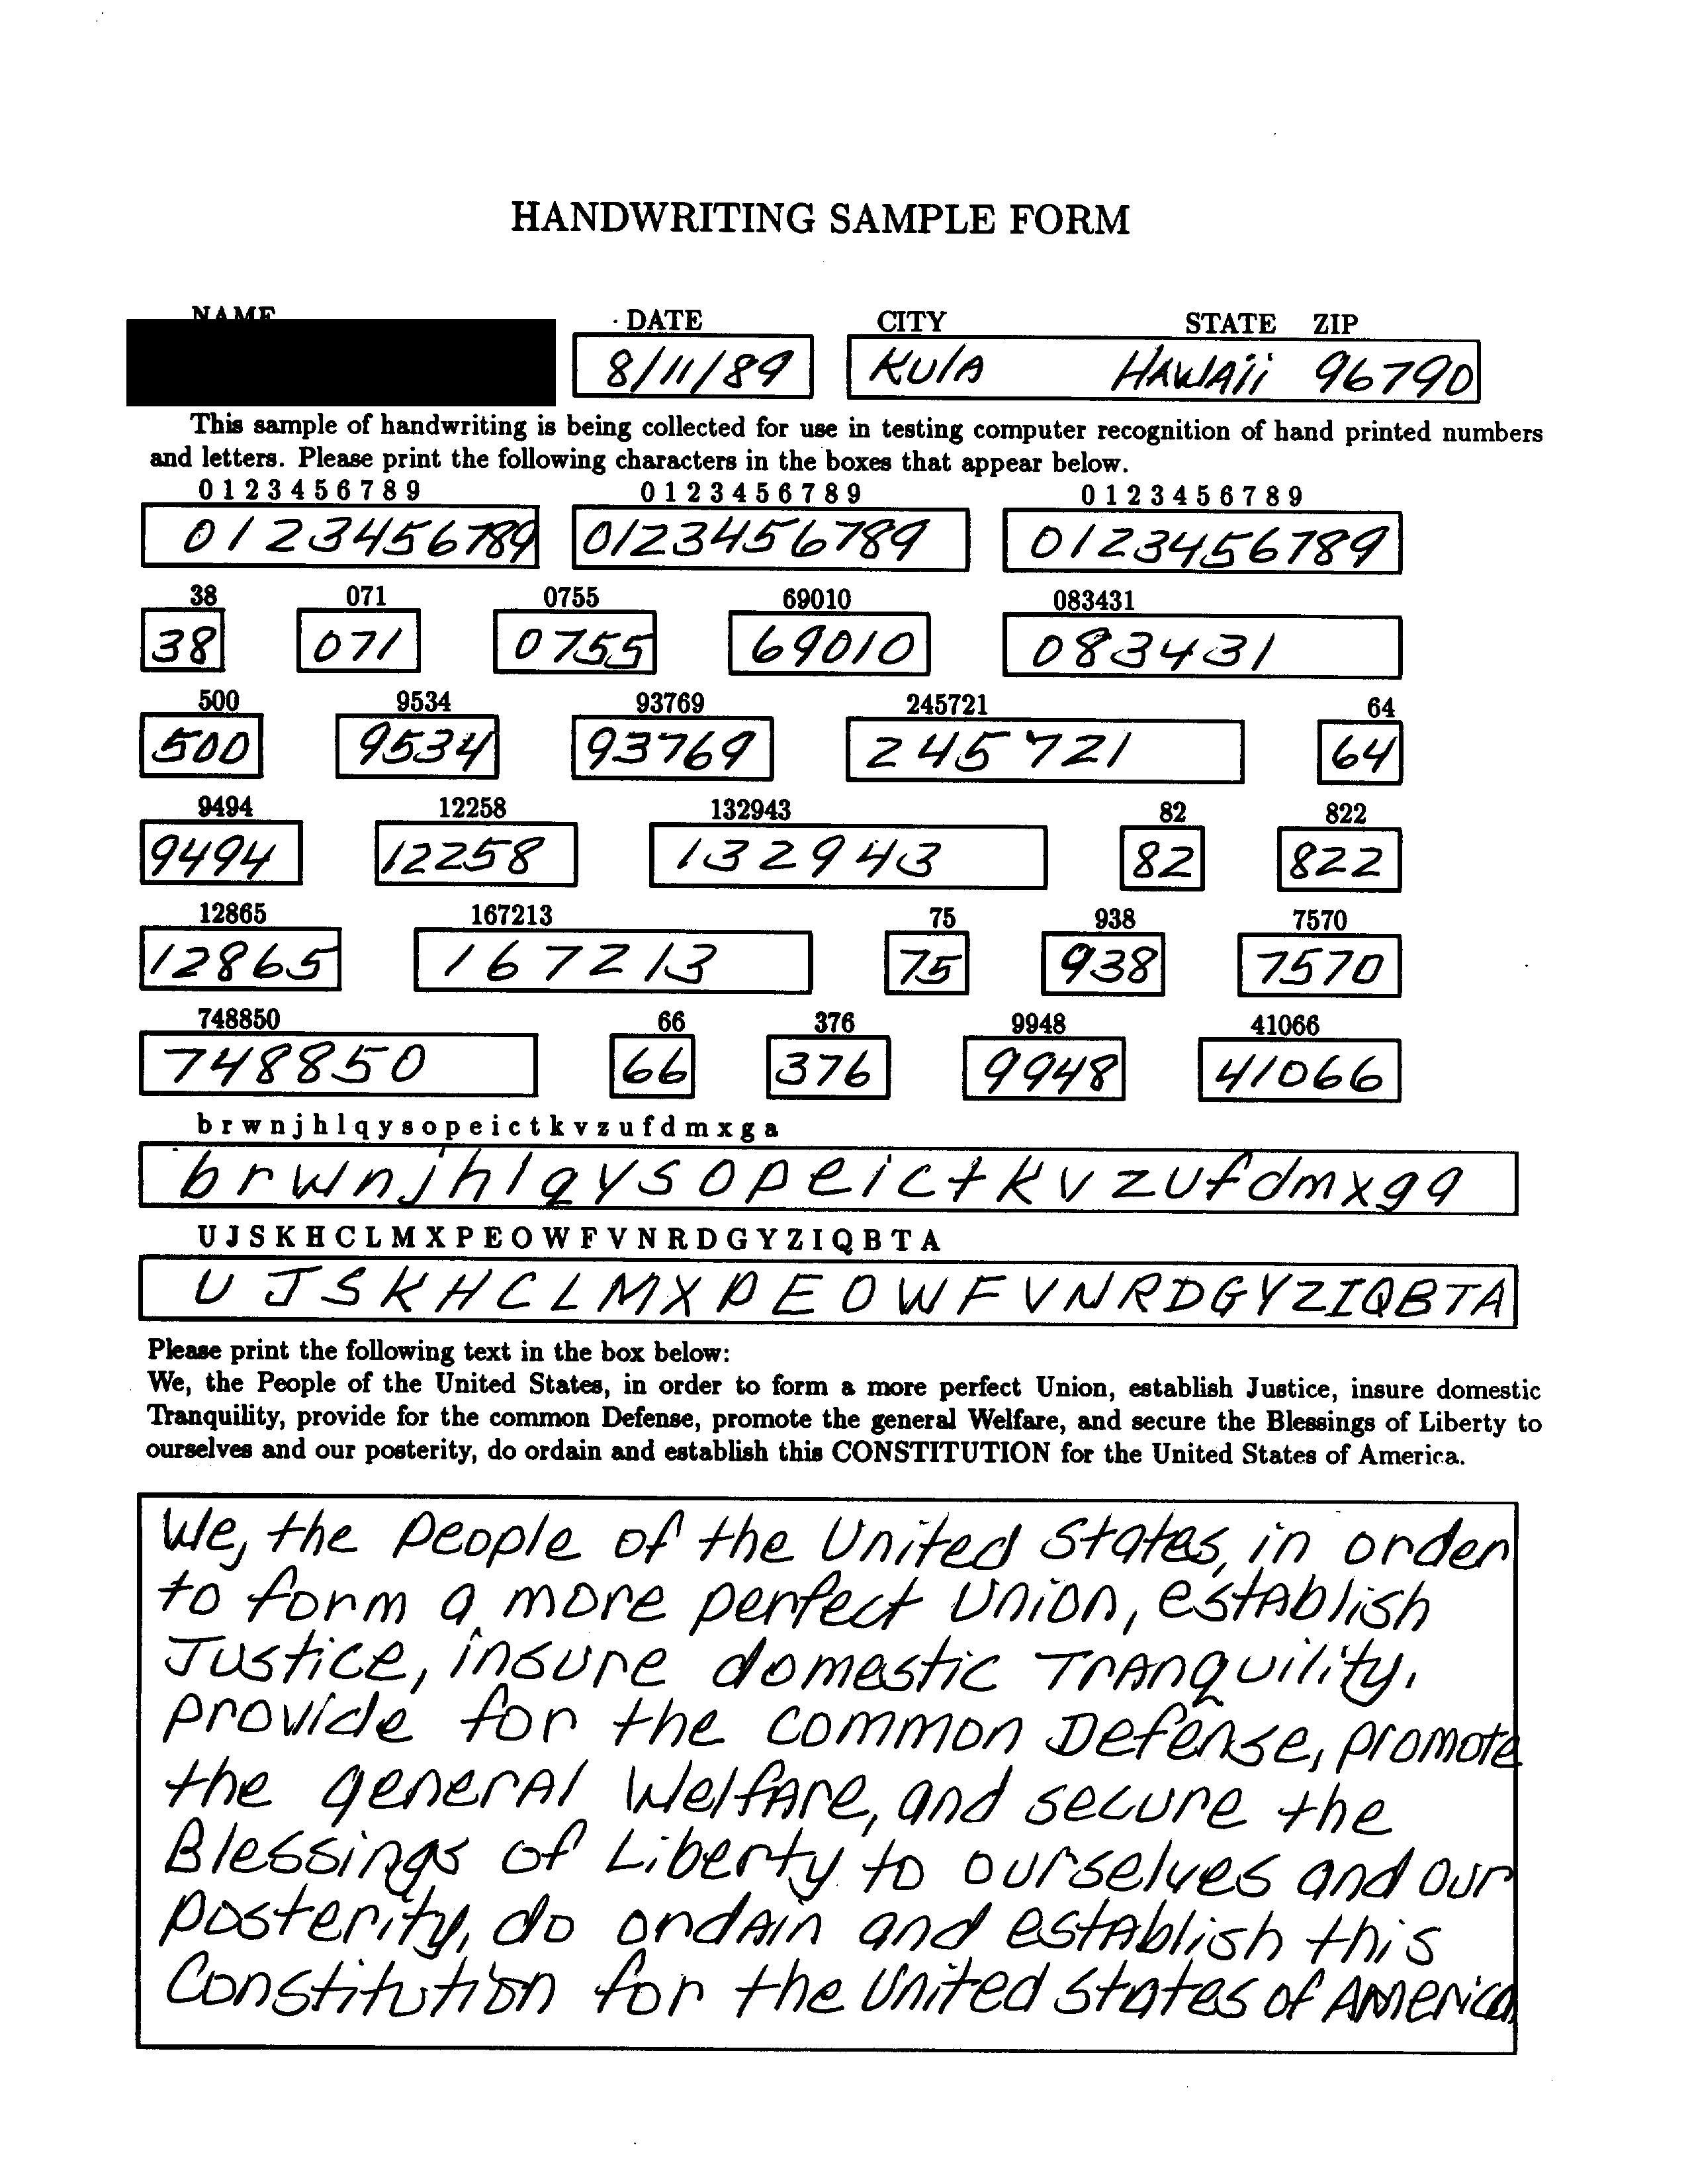 HANDWRITING SAMPLE FORM
NAME DATE CITY STATE ZIP
8/11/89 KulA HAWAii 96790
This sample of handwriting is being collected for use in testing computer recognition of hand printed numbers
and letters. Please print the following characters in the boxes that appear below.
0 1 2 3 4 5 6 7 8 9 0 1 2 3 4 5 6 7 8 9 0 1 2 3 4 5 6 7 8 9
0123456789 0123456789 0123456789
38 071 0755 69010 083431
38 071 0755 69010 083431
500 9534 93769 245721 64
500 9534 93769 245721 64
9494 12258 132943 82 822
9494 12258 132943 82 822
12865 167213 75 938 7570
12865 167213 75 938 7570
748850 66 376 9948 41066
748850 66 376 9948 41066
b r w n j h l q y s o p e i c t k v z u f d m x g a
b r w n j h l q y s o p e i c t k v z u f d m x g a
U J S K H C L M X P E O W F V N R D G Y Z I Q B T A
U J S K H C L M X P E O W F V N R D G Y Z I Q B T A
Please print the following text in the box below:
We, the People of the United States, in order to form a more perfect Union, establish Justice, insure domestic
Tranquility, provide for the common Defense, promote the general Welfare, and secure the Blessings of Liberty to
ourselves and our posterity, do ordain and establish this CONSTITUTION for the United States of America.
We, the People of the United States, in order
to form a more perfect Union, estAblish
Justice, insure domestic TrAnquility,
provide for the common Defense, promote
the generAl WelfAre, and secure the
Blessings of Liberty to ourselves and our
posterity, do ordAin and estAblish this
Constitution for the United States of America.